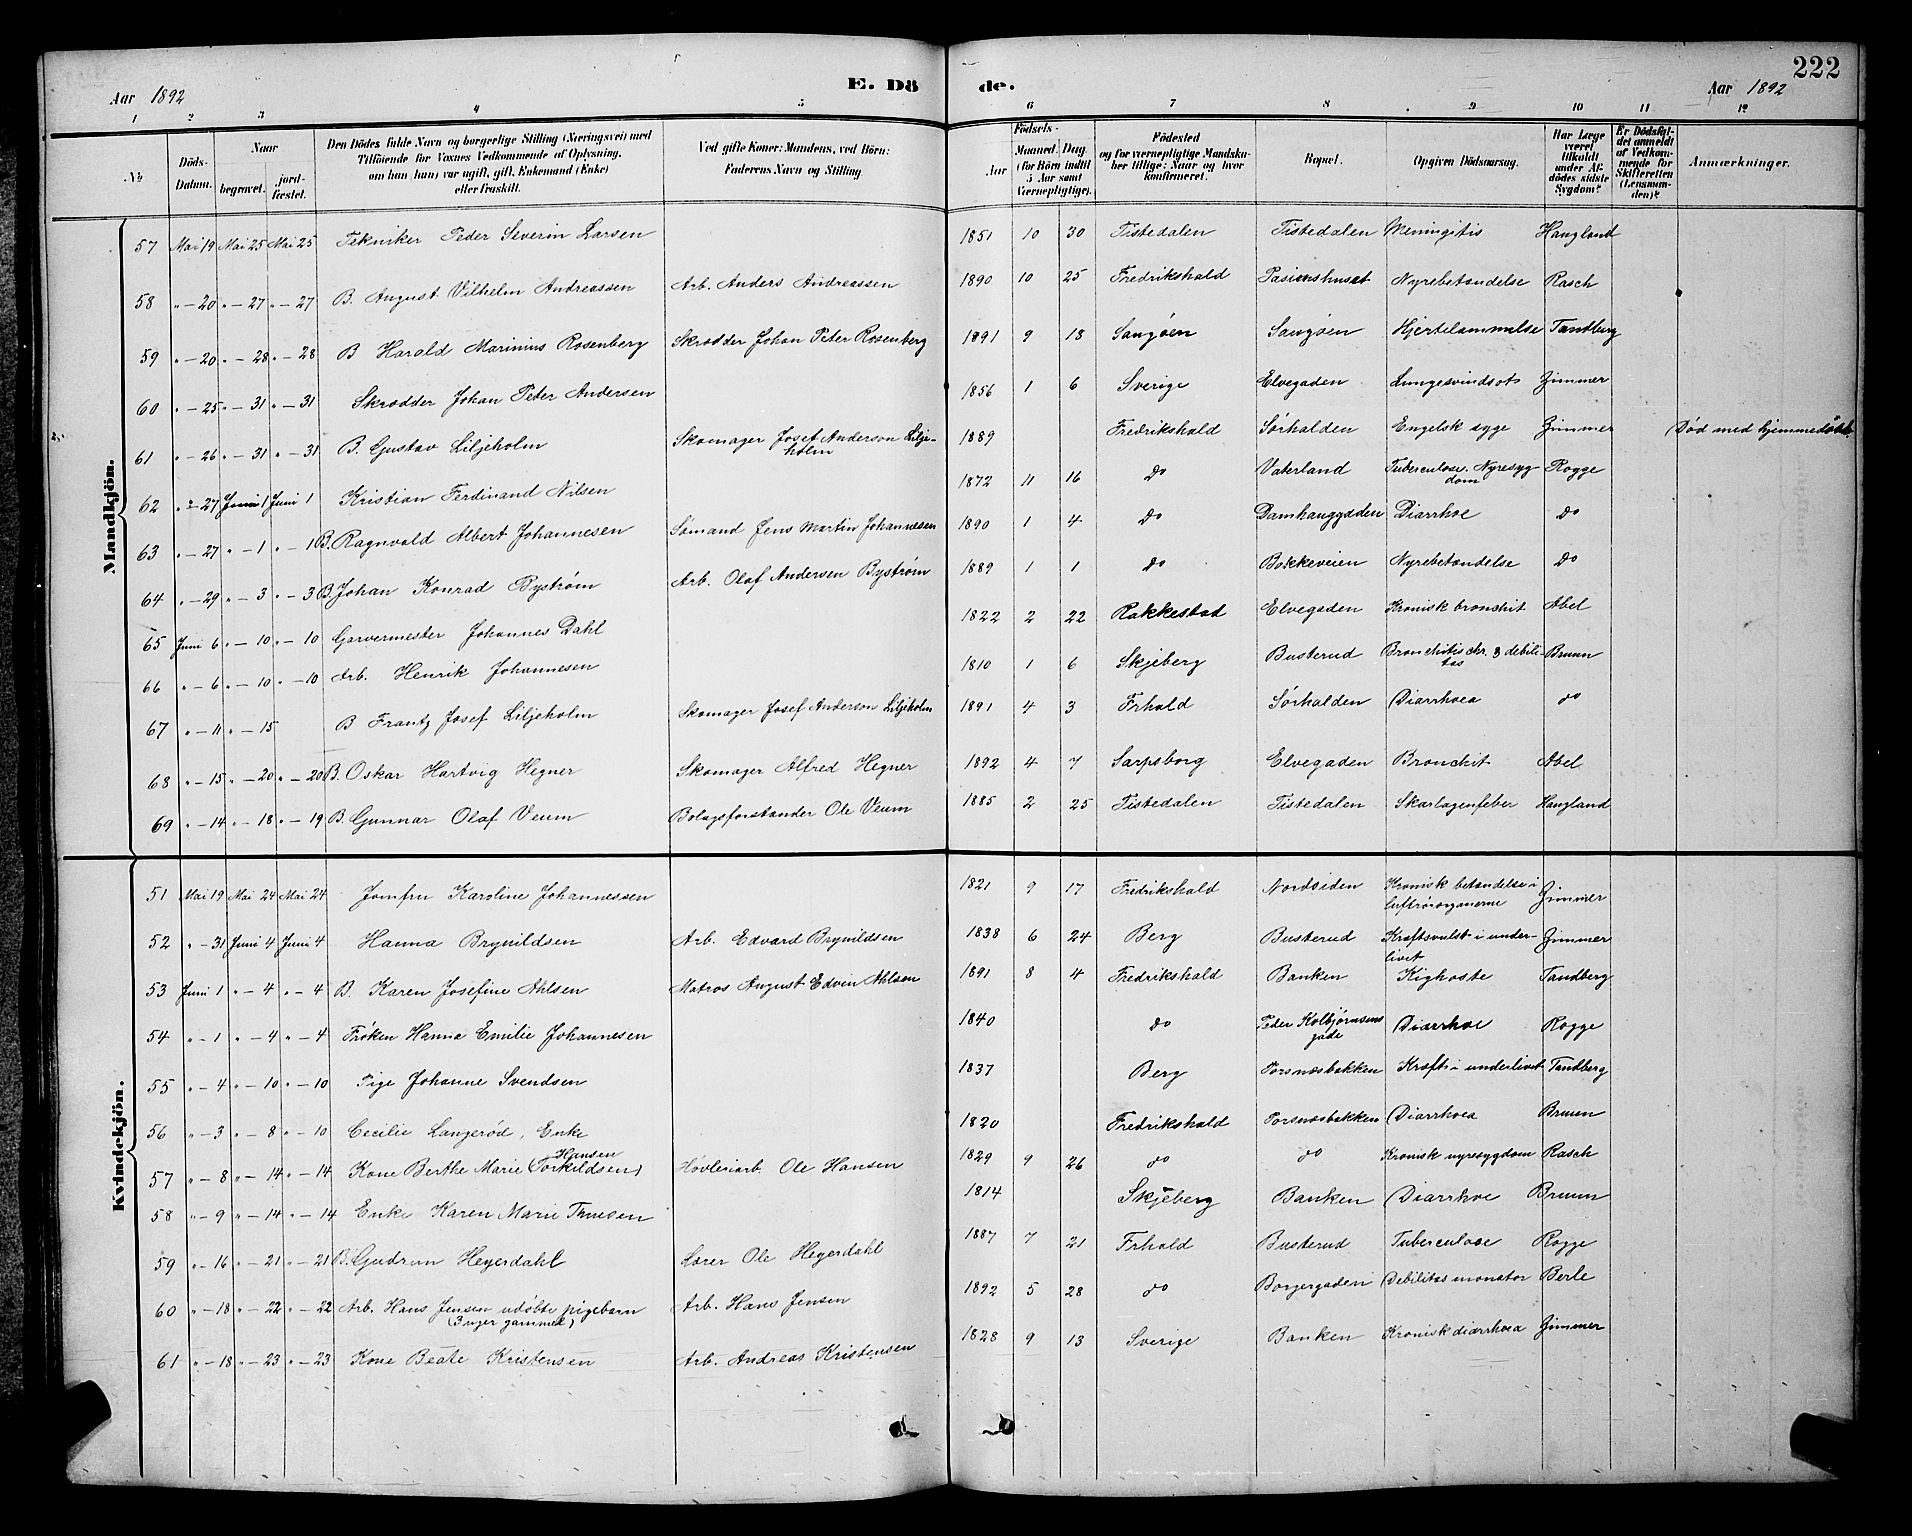 222
Aar 1892 E. Dö de. Aar 1892
1 2 3 4 5 6 7 8 9 10 11 12
№ Döds-Datum. Naar begravet. jordfæstet. Den Dödes fulde Navn og borgerlige Stilling (Næringsvei) med Tilföiende for Voxnes Vedkommende af Oplysning, om han (hun) var ugift, gift, Enkemand (Enke) eller fraskilt. Ved gifte Koner: Mandens, ved Börn: Faderens Navn og Stilling. Födsels- Aar Maaned. Dag (for Börn indtil 5 Aar samt Værnepligtige). Födested og for værnepligtige Mandskaber tillige: Naar og hvor konfirmeret. Bopæl. Opgiven Dödsaarsag. Har Læge været tilkaldt under Afdödes sidste Sygdom? Er Dödsfaldet anmeldt af Vedkommende for Skifteretten (Lensmanden)? Anmærkninger.
Mandkjön.
57 Mai 19 Mai 25 Mai 25 Tekniker Peder Severin Larsen 1851 10 30 Tistedalen Tistedalen Meningitis Haugland
58 " – 20 " – 27 " – 27 B. August Vilhelm Andreassen Arb. Anders Andreassen 1890 10 25 Fredrikshald Pasienshuset Nyrebetændelse Rasch
59 " – 20 " – 28 " – 28 B Harald Marinius Rosenberg Skrædder Johan Peter Rosenberg 1891 9 18 Saugøen Saugøen Hjertelammelse Tandberg
60 " – 25 " – 31 " – 31 Skrædder Johan Peter Andersen 1856 1 6 Sverige Elvegaden Lungesvindsot Zimmer
61 " – 26 " – 31 " – 31 B. Gustav Liljeholm Skomager Josef Anderson Liljeholm 1889 Fredrikshald Sørhalden Engelsk syge Zimmer Død med hjemmedøbt
62 " – 27 Juni 1 Juni 1 Kristian Ferdinand Nilsen 1872 11 16 do Vaterland Tuberculose. Nyresygdom Rogge
63 " – 27 " – 1 " – 1 B. Ragnvald Albert Johannesen Sømand Jens Martin Johannesen 1890 1 4 do Damhauggaden Diarrhoe do
64 " – 29 " – 3 " – 3 B. Johan Konrad Bystrøm Arb. Olaf Andersen Bystrøm 1889 1 1 do Bakkeveien Nyrebetændelse do
65 Juni 6 " – 10 " – 10 Garvermester Johannes Dahl 1822 2 22 Rakkestad Elvegaden Kronisk bronchit Abel
66 " – 6 " – 10 " – 10 Arb. Henrik Johannesen 1810 1 6 Skjeberg Busterud Bronchitis chr. & debilitas Bruun
67 " – 11 " – 15 B Frantz Josef Liljeholm Skomager Josef Anderson Liljeholm 1891 4 3 Frhald Sørhalden Diarrhoea do
68 " – 15 " – 20 " – 20 B. Oskar Hartvig Hegner Skomager Alfred Hegner 1892 4 7 Sarpsborg Elvegaden Bronchit Abel
69 " – 14 " – 18 " – 19 B. Gunnar Olaf Veum Bolagsforstander Ole Veum 1885 2 25 Tistedalen Tistedalen Skarlagenfeber Haugland
Kvindekjön.
51 Mai 19 Mai 24 Mai 24 Jomfru Karoline Johannessen 1821 9 17 Fredrikshald Nordsiden Kronisk betændelse i luftrørsorganerne Zimmer
52 " – 31 Juni 4 Juni 4 Hanna Brynildsen Arb. Edvard Brynildsen 1838 6 24 Berg Busterud Kræftsvulst i underlivet Zimmer
53 Juni 1 " – 4 " – 4 B. Karen Josefine Ahlsen Matros August Edvin Ahlson 1891 8 4 Fredrikshald Banken Kighoste Tandberg
54 " – 1 " – 4 " – 4 Frøken Hanna Emilie Johannesen 1840 do Peder Kolbjørnsens gade Diarrhoe Rogge
55 " – 4 " – 10 " – 10 Pige Johanne Svendsen 1837 Berg Torsnæsbakken Kræft i underlivet Tandberg
56 " – 3 " – 8 " – 10 Cecilie Langerød, Enke 1820 Fredrikshald Torsnæsbakken Diarrhoea Bruun
57 " – 8 " – 14 " – 14 Kone Berthe Marie Hansen (Torkildsen) Høvleriarb. Ole Hansen 1829 9 26 do do Kronisk nyresygdom Rasch
58 " – 9 " – 14 " – 14 Enke Karen Marie Thuesen 1814 Skjeberg Banken Diarrhoe Bruun
59 " – 16 " – 21 " – 21 B. Gudrun Heyerdahl Lærer Ole Heyerdahl 1887 7 21 Frhald Busterud Tuberculose Rogge
60 " – 18 " – 22 " – 22 Arb. Hans Jensen udøbte pigebarn (3 uger gammel) Arb. Hans Jensen 1892 5 28 do Borgergaden Debilitas Berle
61 " – 18 " – 23 " – 23 Kone Beate Kristensen Arb. Andreas Kristensen 1828 9 13 Sverige Banken Kronisk diarrhoea Zimmer